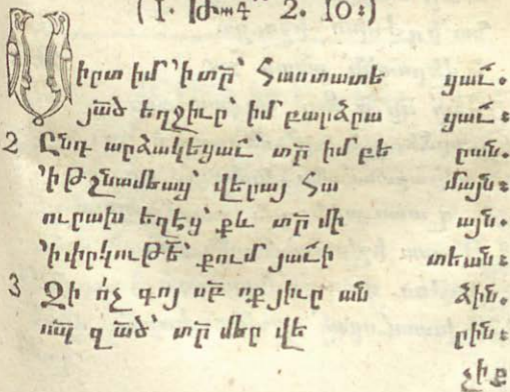 (I. Թագ՟ 2. 10:)
Սիրտ իմ՝ ՚ի տր՟՝ Հաստատե ցաւ.
յա՟ծ եղջիւր՝ իմ՝ բարձրա ցաւ.
2 Ընդ արձակեցաւ՝ տր՟ իմ՝ բե րան.
՚ի թշնամեաց՝ վերայ Հա մայն։
ուրախ եղէց՝ քև տր՟ մի այն.
՚ի փրկութե՟՝ քում յաւի տեան։
3 Զի ո՛չ գոյ սբ՟ ոք յիւր ան ձին.
որպ՟ զա՟ծ՝ տր՟ մեր վե րին։
չիք